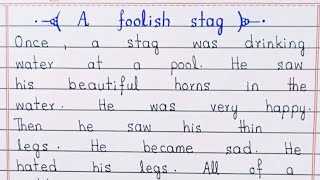 A foolish stag
Once, a stag was drinking
water at a pool. He saw
his beautiful horns in the
water. He was very happy.
Then he saw his thin
legs. He became sad. He
hated his legs. All of a